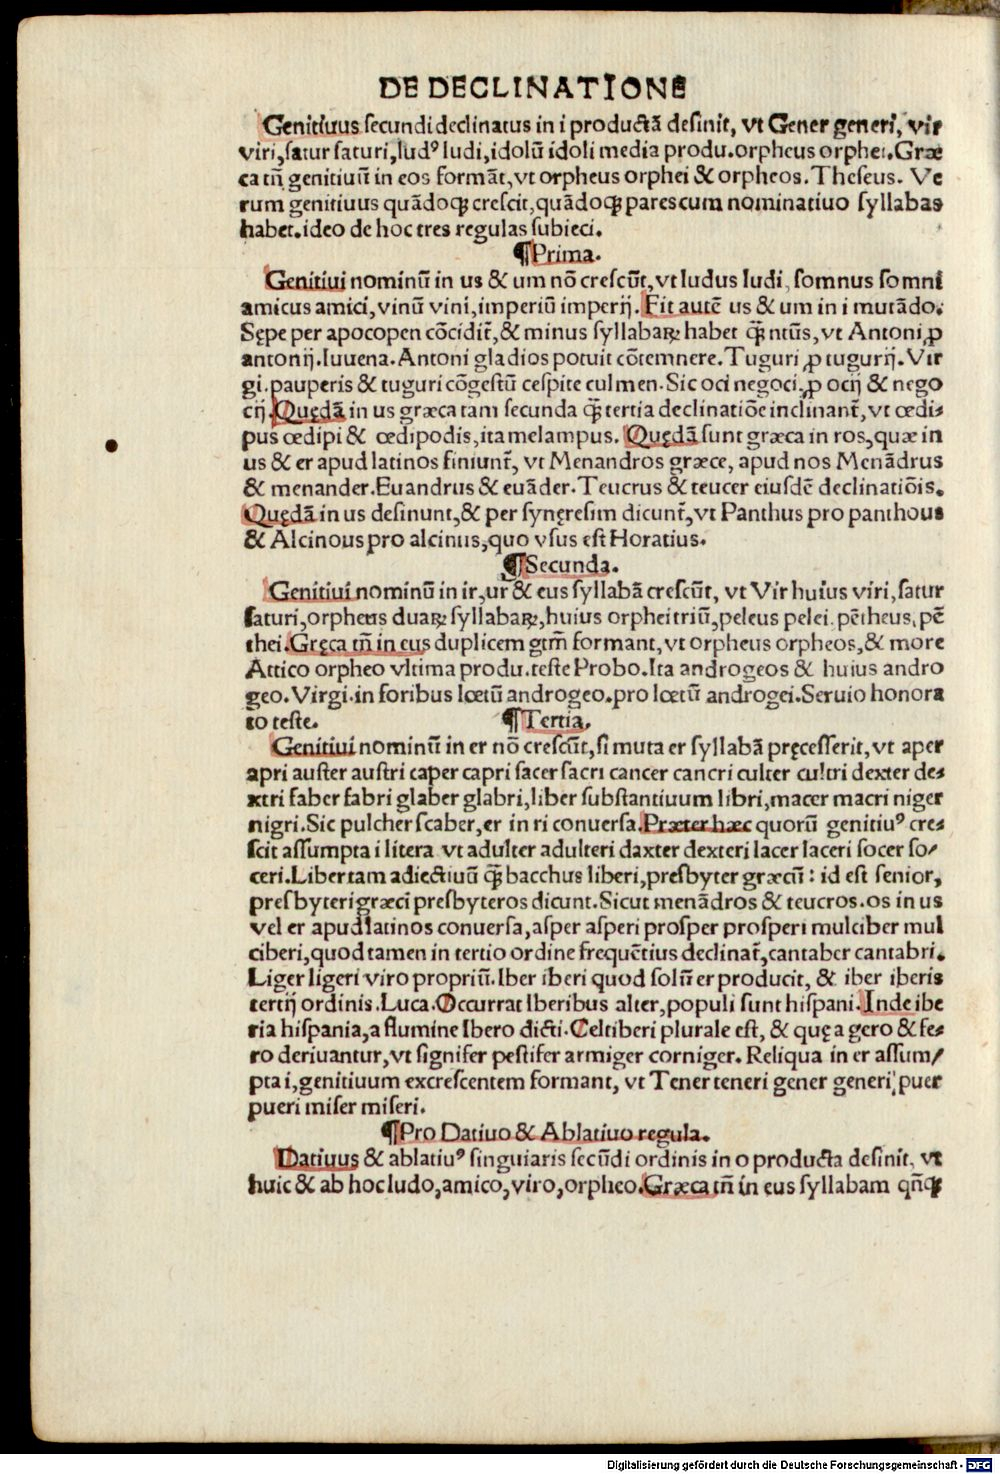 DE DECLINATIONE
Genitiuus secundi declinatus in i productā desinit, vt Gener generi, vir
viri, satur saturi, ludꝰ ludi, idolū idoli media produ. orpheus orphei. Græ
ca tñ genitiuū in eos formāt, vt orpheus orphei & orpheos. Theseus. Ve
rum genitiuus quādoqꝫ crescit, quādoqꝫ pares cum nominatiuo syllabas
habet. ideo de hoc tres regulas subieci.
¶Prima.
Genitiui nominū in us & um nō crescūt, vt ludus ludi, somnus somni
amicus amici, vinū vini, imperiū imperij. Fit autē us & um in i mutādo.
Sępe per apocopen cōcidit̄, & minus syllabaꝝ habet q̄ꝫ ntūs, vt Antoni, ꝓ
antonij. Iuuena. Antoni gladios potuit cōtemnere. Tuguri ꝓ tugurij. Vir
gi. pauperis & tuguri cōgestū cespite culmen. Sic oci negoci, ꝓ ocij & nego
cij. Quędā in us græca tam secunda q̄ꝫ tertia declinatiōe inclinant̄, vt œdi-
pus œdipi & œdipodis, ita melampus. Quędā sunt græca in ros, quæ in
us & er apud latinos finiunt̄, vt Menandros græce, apud nos Menādrus
& menander. Euandrus & euāder. Teucrus & teucer eiusdē declinatiōis.
Quędā in us desinunt, & per synęresim dicunt̄, vt Panthus pro panthous
& Alcinous pro alcinus, quo vsus est Horatius.
¶Secunda.
Genitiui nominū in ir, ur & eus syllabā crescūt, vt Vir huius viri, satur
saturi, orpheus duaꝝ syllabaꝝ, huius orphei triū, peleus pelei. pētheus, pē
thei. Gręca tñ in eus duplicem gtm̄ formant, vt orpheus orpheos, & more
Attico orpheo vltima produ. teste Probo. Ita androgeos & huius andro
geo. Virgi. in foribus lœtū androgeo. pro lœtū androgei. Seruio honora
to teste. ¶Tertia.
Genitiui nominū in er nō crescūt, si muta er syllabā pręcesserit, vt aper
apri auster austri caper capri sacer sacri cancer cancri culter cultri dexter de-
xtri faber fabri glaber glabri, liber substantiuum libri, macer macri niger
nigri. Sic pulcher scaber, er in ri conuersa. Præter hæc quorū genitiuꝰ cre-
scit assumpta i litera vt adulter adulteri daxter dexteri lacer laceri socer so/
ceri. Liber tam adiectiuū q̄ꝫ bacchus liberi, presbyter græcū: id est senior,
presbyteri græci presbyteros dicunt. Sicut menādros & teucros. os in us
vel er apud latinos conuersa, asper asperi prosper prosperi mulciber mul
ciberi, quod tamen in tertio ordine frequētius declinat̄, cantaber cantabri.
Liger ligeri viro propriū. Iber iberi quod solū er producit, & iber iberis
tertij ordinis. Luca. Occurrat Iberibus alter, populi sunt hispani. Inde ibe
ria hispania, a flumine Ibero dicti. Celtiberi plurale est, & quę a gero & fe-
ro deriuantur, vt signifer pestifer armiger corniger. Reliqua in er assum/
pta i, genitiuum excrescentem formant, vt Tener teneri gener generi puer
pueri miser miseri.
¶Pro Datiuo & Ablatiuo regula.
Datiuus & ablatiuꝰ singularis secūdi ordinis in o producta desinit, vt
huic & ab hoc ludo, amico, viro, orpheo. Græca tñ in eus syllabam qñqꝫ
Digitalisierung gefördert durch die Deutsche Forschungsgemeinschaft - DFG